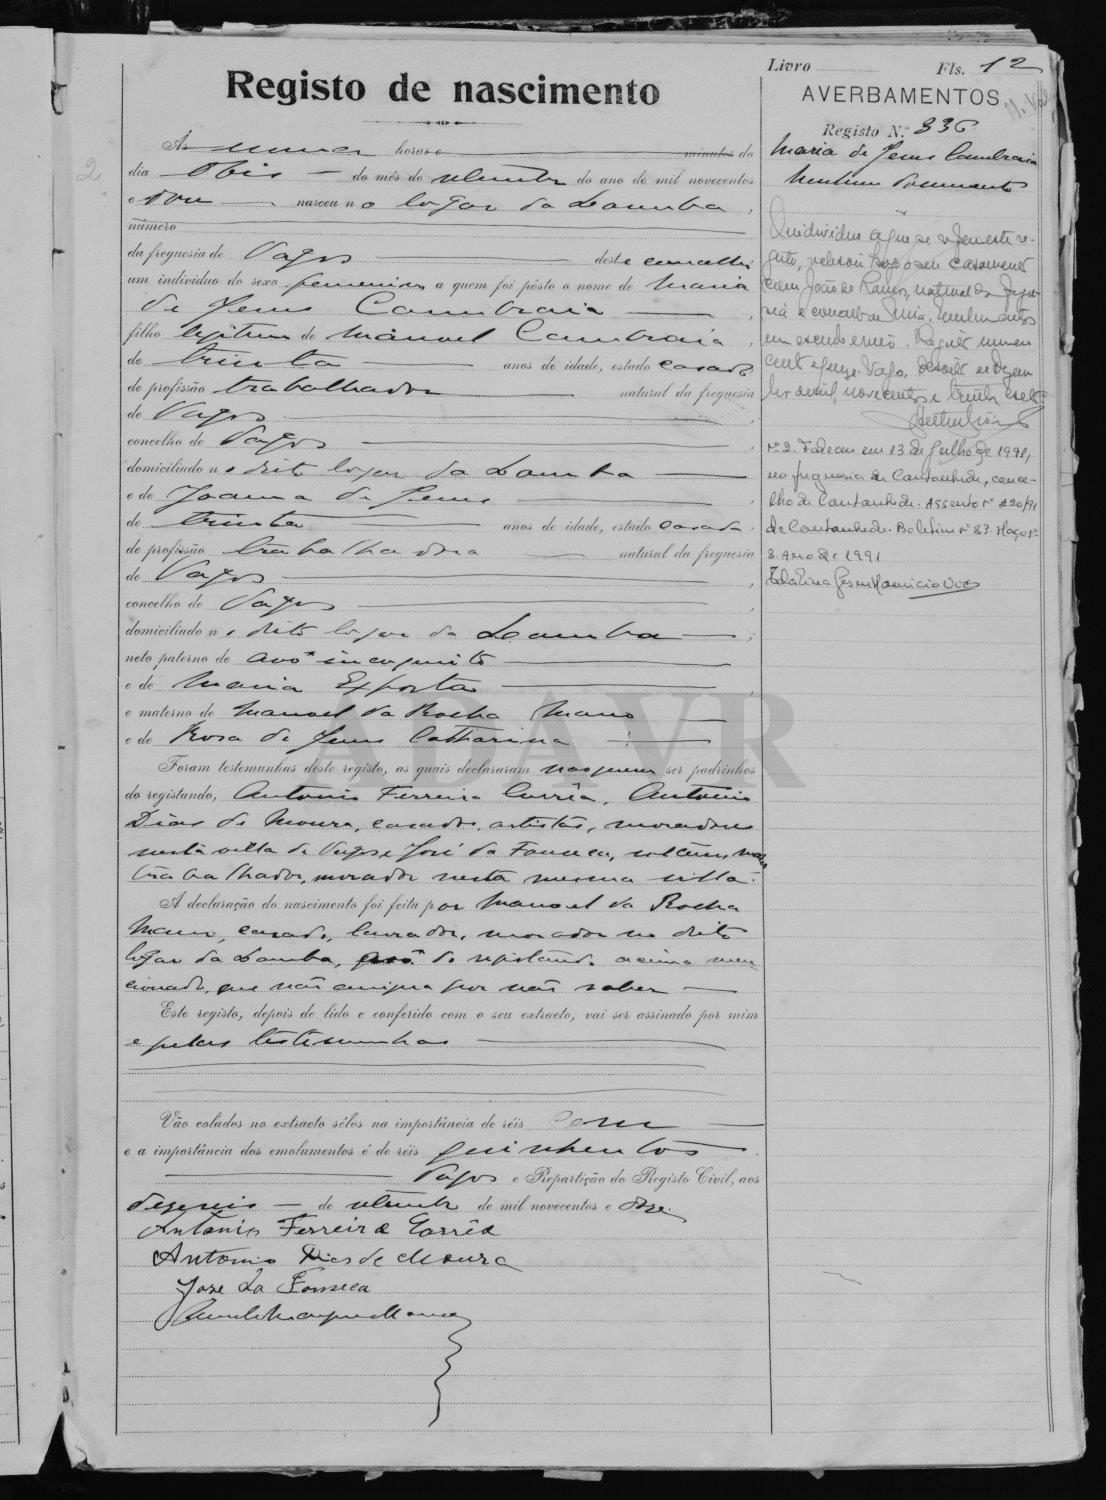 Livro Fls. 12
Registo de nascimento
AVERBAMENTOS
Registo N.º 336
Ás nove horas e minutos do
dia dois do mês de do ano de mil novecentos
e onze nasceu no logar da Lomba,
número
da freguesia de Vagos deste concelho
um individuo do sexo femenino a quem foi pôsto o nome de Maria
de Jesus Cambraia,
filho legitimo de Manoel Cambraia,
de trinta anos de idade, estado casado
de profissão trabalhador natural da freguesia
de Vagos,
concelho de Vagos,
domiciliado no dito logar da Lomba
e de Joanna de Jesus,
de trinta anos de idade, estado casada
de profissão trabalhadora natural da freguesia
de Vagos,
concelho de Vagos,
domiciliado no dito logar da Lomba;
neto paterno de avô incognito
e de Maria Exposta,
e materno de Manoel da Rocha Mano
e de Rosa de Jesus Catharina
Foram testemunhas deste registo, as quais declararam não querer ser padrinhos
do registando, Antonio Ferreira Corrêa, Antonio
Dias de Moura, casados, artistas, moradores
nesta villa de Vagos e José da Fonseca, solteiro,
trabalhador, morador nesta mesma villa.
A declaração do nascimento foi feita por Manoel da Rocha
Mano, casado, lavrador, morador no dito
logar da Lomba, avô do registando acima men
cionado, que não assigna por não saber
Este registo, depois de lido e conferido com o seu extracto, vai ser assinado por mim
e pelas testemunhas
Vão colados no extracto sêlos na importância de réis cem
e a importância dos emolumentos é de réis quinhentos.
Vagos e Repartição do Registo Civil, aos
de de mil novecentos e onze.
Antonio Ferreira Corrêa
Antonio Dias de Moura
Jose da Fonseca
Maria de Jesus Cambraia
Nenhum documento
O individuo a que se refere este re-
gisto, celebrou hoje o seu casamento
com João de Ramos, natural da fregue-
sia e concelho de Mira,
Vagos, dezoito de Dezem
bro de mil novecentos e trinta e
Nº 2. Faleceu em 13 de Julho de 1991,
na freguesia de Cantanhede, conce-
lho de Cantanhede. Assento nº 220/91
de Cantanhede. Boletim nº 83. Maço nº
8. Ano de 1991
ADAVR